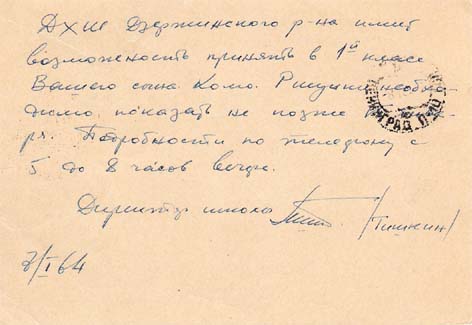 ДХШ Дзержинского р-на имеет
возможность принять в 1й класс
Вашего сына Колю. Рисунки необхо-
димо показать не позже
ря. Подробности по телефону с
5 до 8 часов вечера.
Директор школы /Тишкин/
8/I 64
ЛЕНИНГРАД П-